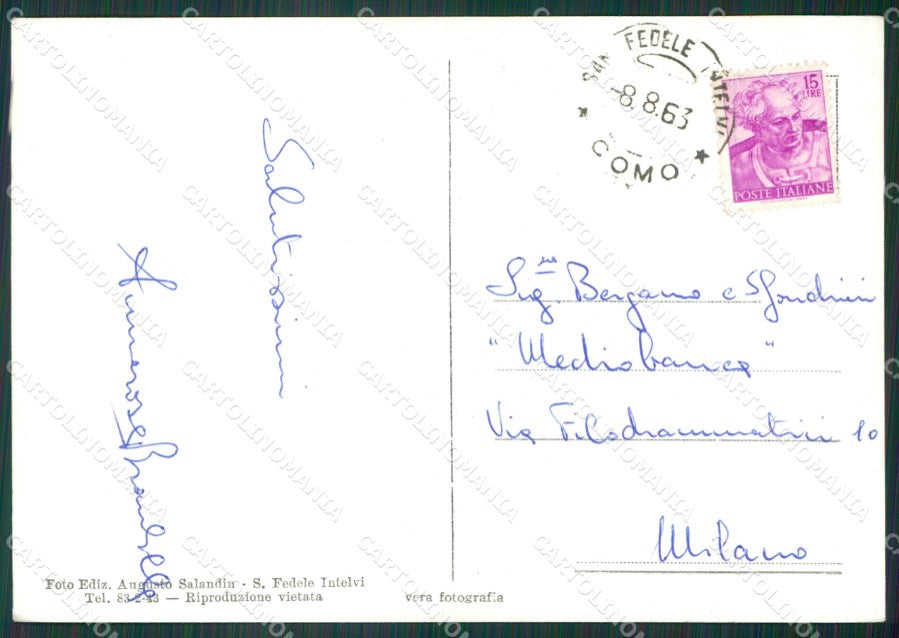 SAN FEDELE INTELVI
-8.8.63
COMO
15
LIRE
POSTE ITALIANE
Salutissimi
Sig.ne Bergamo e Sfondrini
"Mediobanca"
Via Filodrammatici 10
Milano
Foto Ediz. Augusto Salandin - S. Fedele Intelvi
Tel. 83-2-43 — Riproduzione vietata
vera fotografia
CARTOLINOMANIA